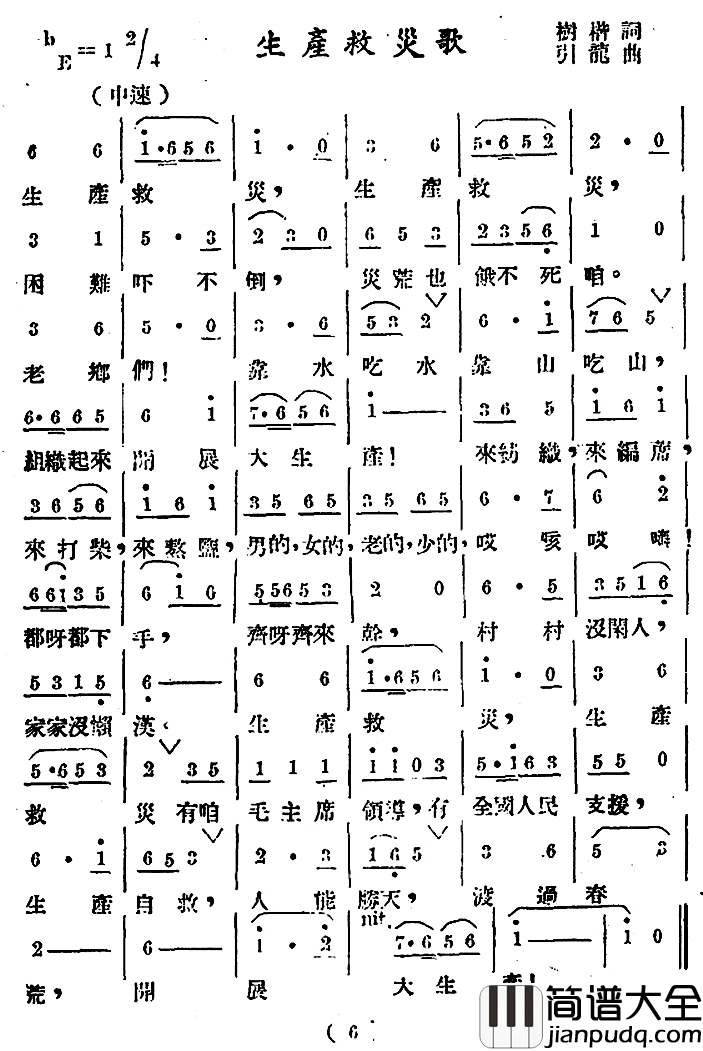 ♭E=1 2/4
生產救災歌
樹楷詞
引龍曲
(中速)
6 6 | 1·656 | 1·0 | 3 6 | 5·652 | 2·0
生產救災，生產救災，
3 1 | 5·3 | 2 3 0 | 6 5 3 | 2 3 5 6 | 1 0
困難吓不倒，災荒也餓不死咱。
3 6 | 5·0 | 3·6 | 5 3 2 | 6·1 | 7 6 5
老鄉們！靠水吃水靠山吃山，
6·6 6 5 | 6 1 | 7·6 5 6 | 1 — | 3 6 5 | 1 6 1
組織起來開展大生產！來紡織，來編蓆，
3 6 5 6 | 1 6 1 | 3 5 6 5 | 3 5 6 5 | 6·7 | 6 2
來打柴，來熬鹽，男的，女的，老的，少的，哎咳哎
6 6 1 3 5 | 6 1 6 | 5 5 6 5 3 | 2 0 | 6·5 | 3 5 1 6
都呀都下手，齊呀齊來幹，村村沒閑人，
5 3 1 5 | 6 — | 6 6 | 1·6 5 6 | 1·0 | 3 6
家家沒懶漢。生產救災，生產
5·6 5 3 | 2 3 5 | 1 1 1 | 1 1 0 3 | 5·1 6 3 | 5 5 0
救災有咱毛主席領導，有全國人民支援，
6·1 | 6 5 3 | 2·3 | 1 6 5 | 3 6 | 5 3
生產自救，人能勝天，渡過春
rit.
2 — | 6 — | 1·2 | 7·6 5 6 | 1 — | 1 0
荒，開展大生產！
( 6
简谱大全
jianpudq.com